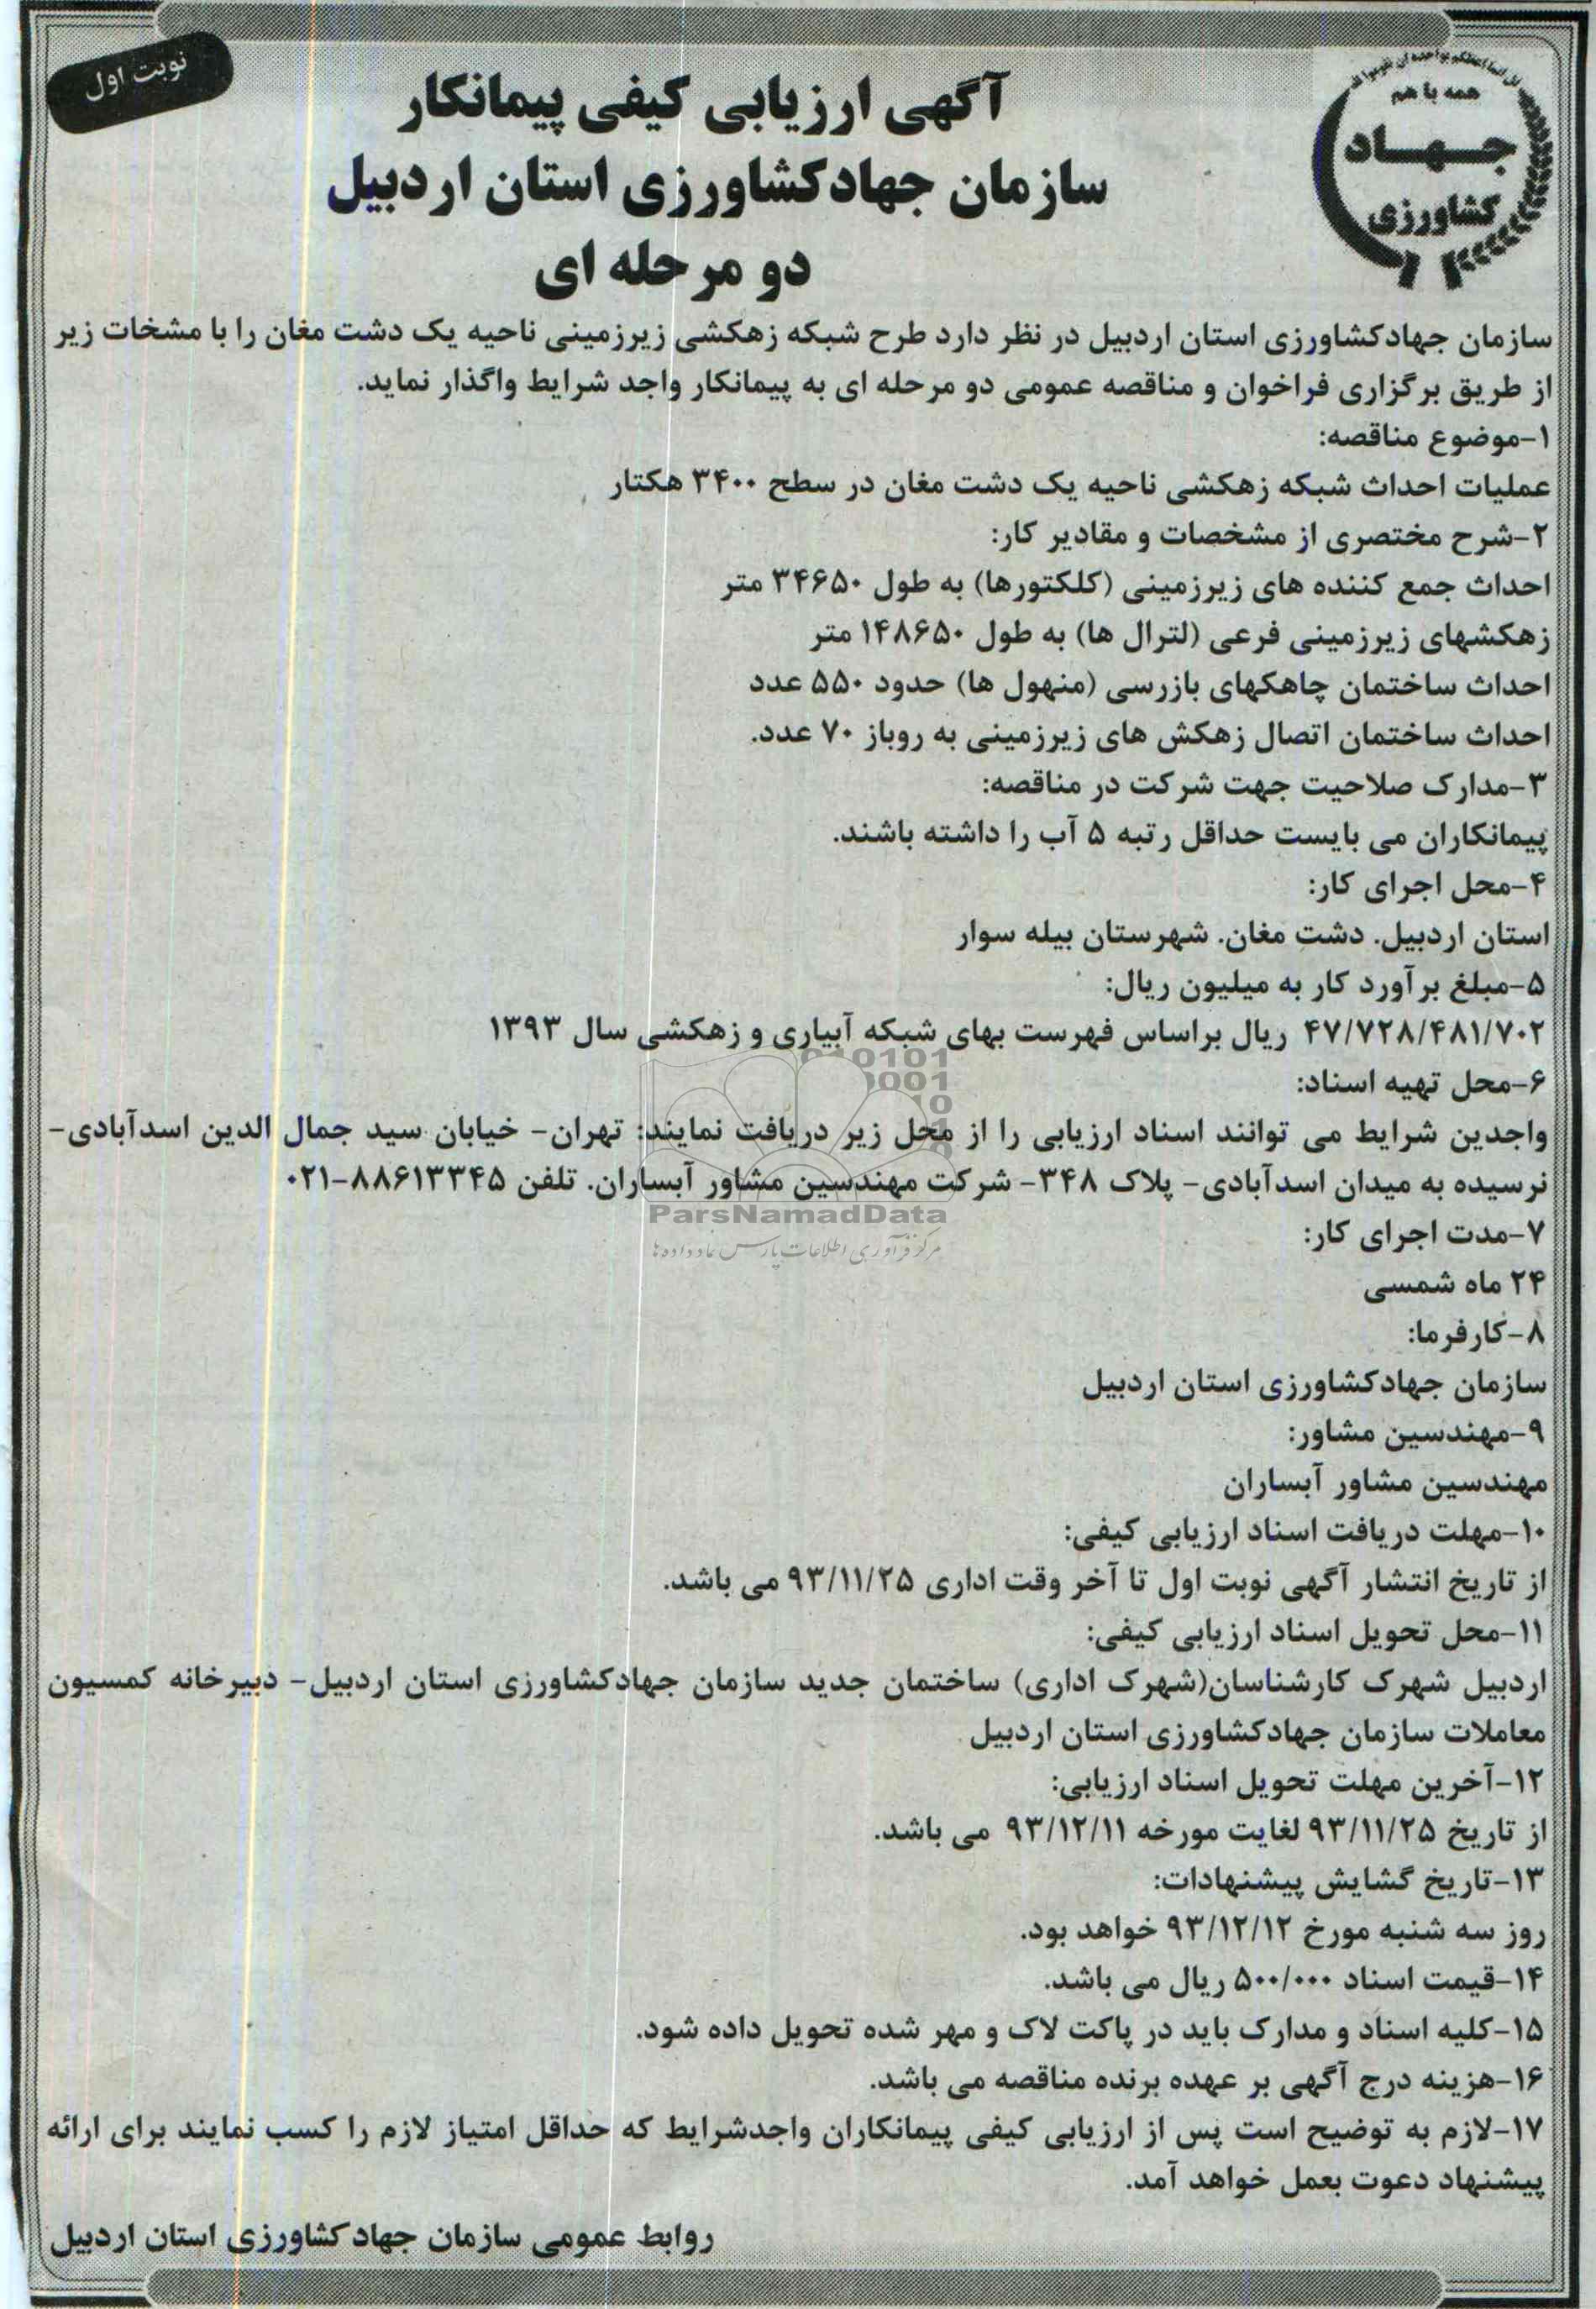 نوبت اول
همه با هم
جهاد
کشاورزی
آگهی ارزیابی کیفی پیمانکار
سازمان جهادکشاورزی استان اردبیل
دو مرحله ای
سازمان جهادکشاورزی استان اردبیل در نظر دارد طرح شبکه زهکشی زیرزمینی ناحیه یک دشت مغان را با مشخات زیر
از طریق برگزاری فراخوان و مناقصه عمومی دو مرحله ای به پیمانکار واجد شرایط واگذار نماید.
۱-موضوع مناقصه:
عملیات احداث شبکه زهکشی ناحیه یک دشت مغان در سطح ۳۴۰۰ هکتار
۲-شرح مختصری از مشخصات و مقادیر کار:
احداث جمع کننده های زیرزمینی (کلکتورها) به طول ۳۴۶۵۰ متر
زهکشهای زیرزمینی فرعی (لترال ها) به طول ۱۴۸۶۵۰ متر
احداث ساختمان چاهکهای بازرسی (منهول ها) حدود ۵۵۰ عدد
احداث ساختمان اتصال زهکش های زیرزمینی به روباز ۷۰ عدد.
۳-مدارک صلاحیت جهت شرکت در مناقصه:
پیمانکاران می بایست حداقل رتبه ۵ آب را داشته باشند.
۴-محل اجرای کار:
استان اردبیل. دشت مغان. شهرستان بیله سوار
۵-مبلغ برآورد کار به میلیون ریال:
۴۷/۷۲۸/۴۸۱/۷۰۲ ریال براساس فهرست بهای شبکه آبیاری و زهکشی سال ۱۳۹۳
۶-محل تهیه اسناد:
واجدین شرایط می توانند اسناد ارزیابی را از محل زیر دریافت نمایند: تهران- خیابان سید جمال الدین اسدآبادی-
نرسیده به میدان اسدآبادی- پلاک ۳۴۸- شرکت مهندسین مشاور آبساران. تلفن ۸۸۶۱۳۳۴۵-۰۲۱
ParsNamadData
مرکز فرآوری اطلاعات پارس نماد داده ها
۷-مدت اجرای کار:
۲۴ ماه شمسی
۸-کارفرما:
سازمان جهادکشاورزی استان اردبیل
۹-مهندسین مشاور:
مهندسین مشاور آبساران
۱۰-مهلت دریافت اسناد ارزیابی کیفی:
از تاریخ انتشار آگهی نوبت اول تا آخر وقت اداری ۹۳/۱۱/۲۵ می باشد.
۱۱-محل تحویل اسناد ارزیابی کیفی:
اردبیل شهرک کارشناسان(شهرک اداری) ساختمان جدید سازمان جهادکشاورزی استان اردبیل- دبیرخانه کمسیون
معاملات سازمان جهادکشاورزی استان اردبیل
۱۲-آخرین مهلت تحویل اسناد ارزیابی:
از تاریخ ۹۳/۱۱/۲۵ لغایت مورخه ۹۳/۱۲/۱۱ می باشد.
۱۳-تاریخ گشایش پیشنهادات:
روز سه شنبه مورخ ۹۳/۱۲/۱۲ خواهد بود.
۱۴-قیمت اسناد ۵۰۰/۰۰۰ ریال می باشد.
۱۵-کلیه اسناد و مدارک باید در پاکت لاک و مهر شده تحویل داده شود.
۱۶-هزینه درج آگهی بر عهده برنده مناقصه می باشد.
۱۷-لازم به توضیح است پس از ارزیابی کیفی پیمانکاران واجدشرایط که حداقل امتیاز لازم را کسب نمایند برای ارائه
پیشنهاد دعوت بعمل خواهد آمد.
روابط عمومی سازمان جهادکشاورزی استان اردبیل